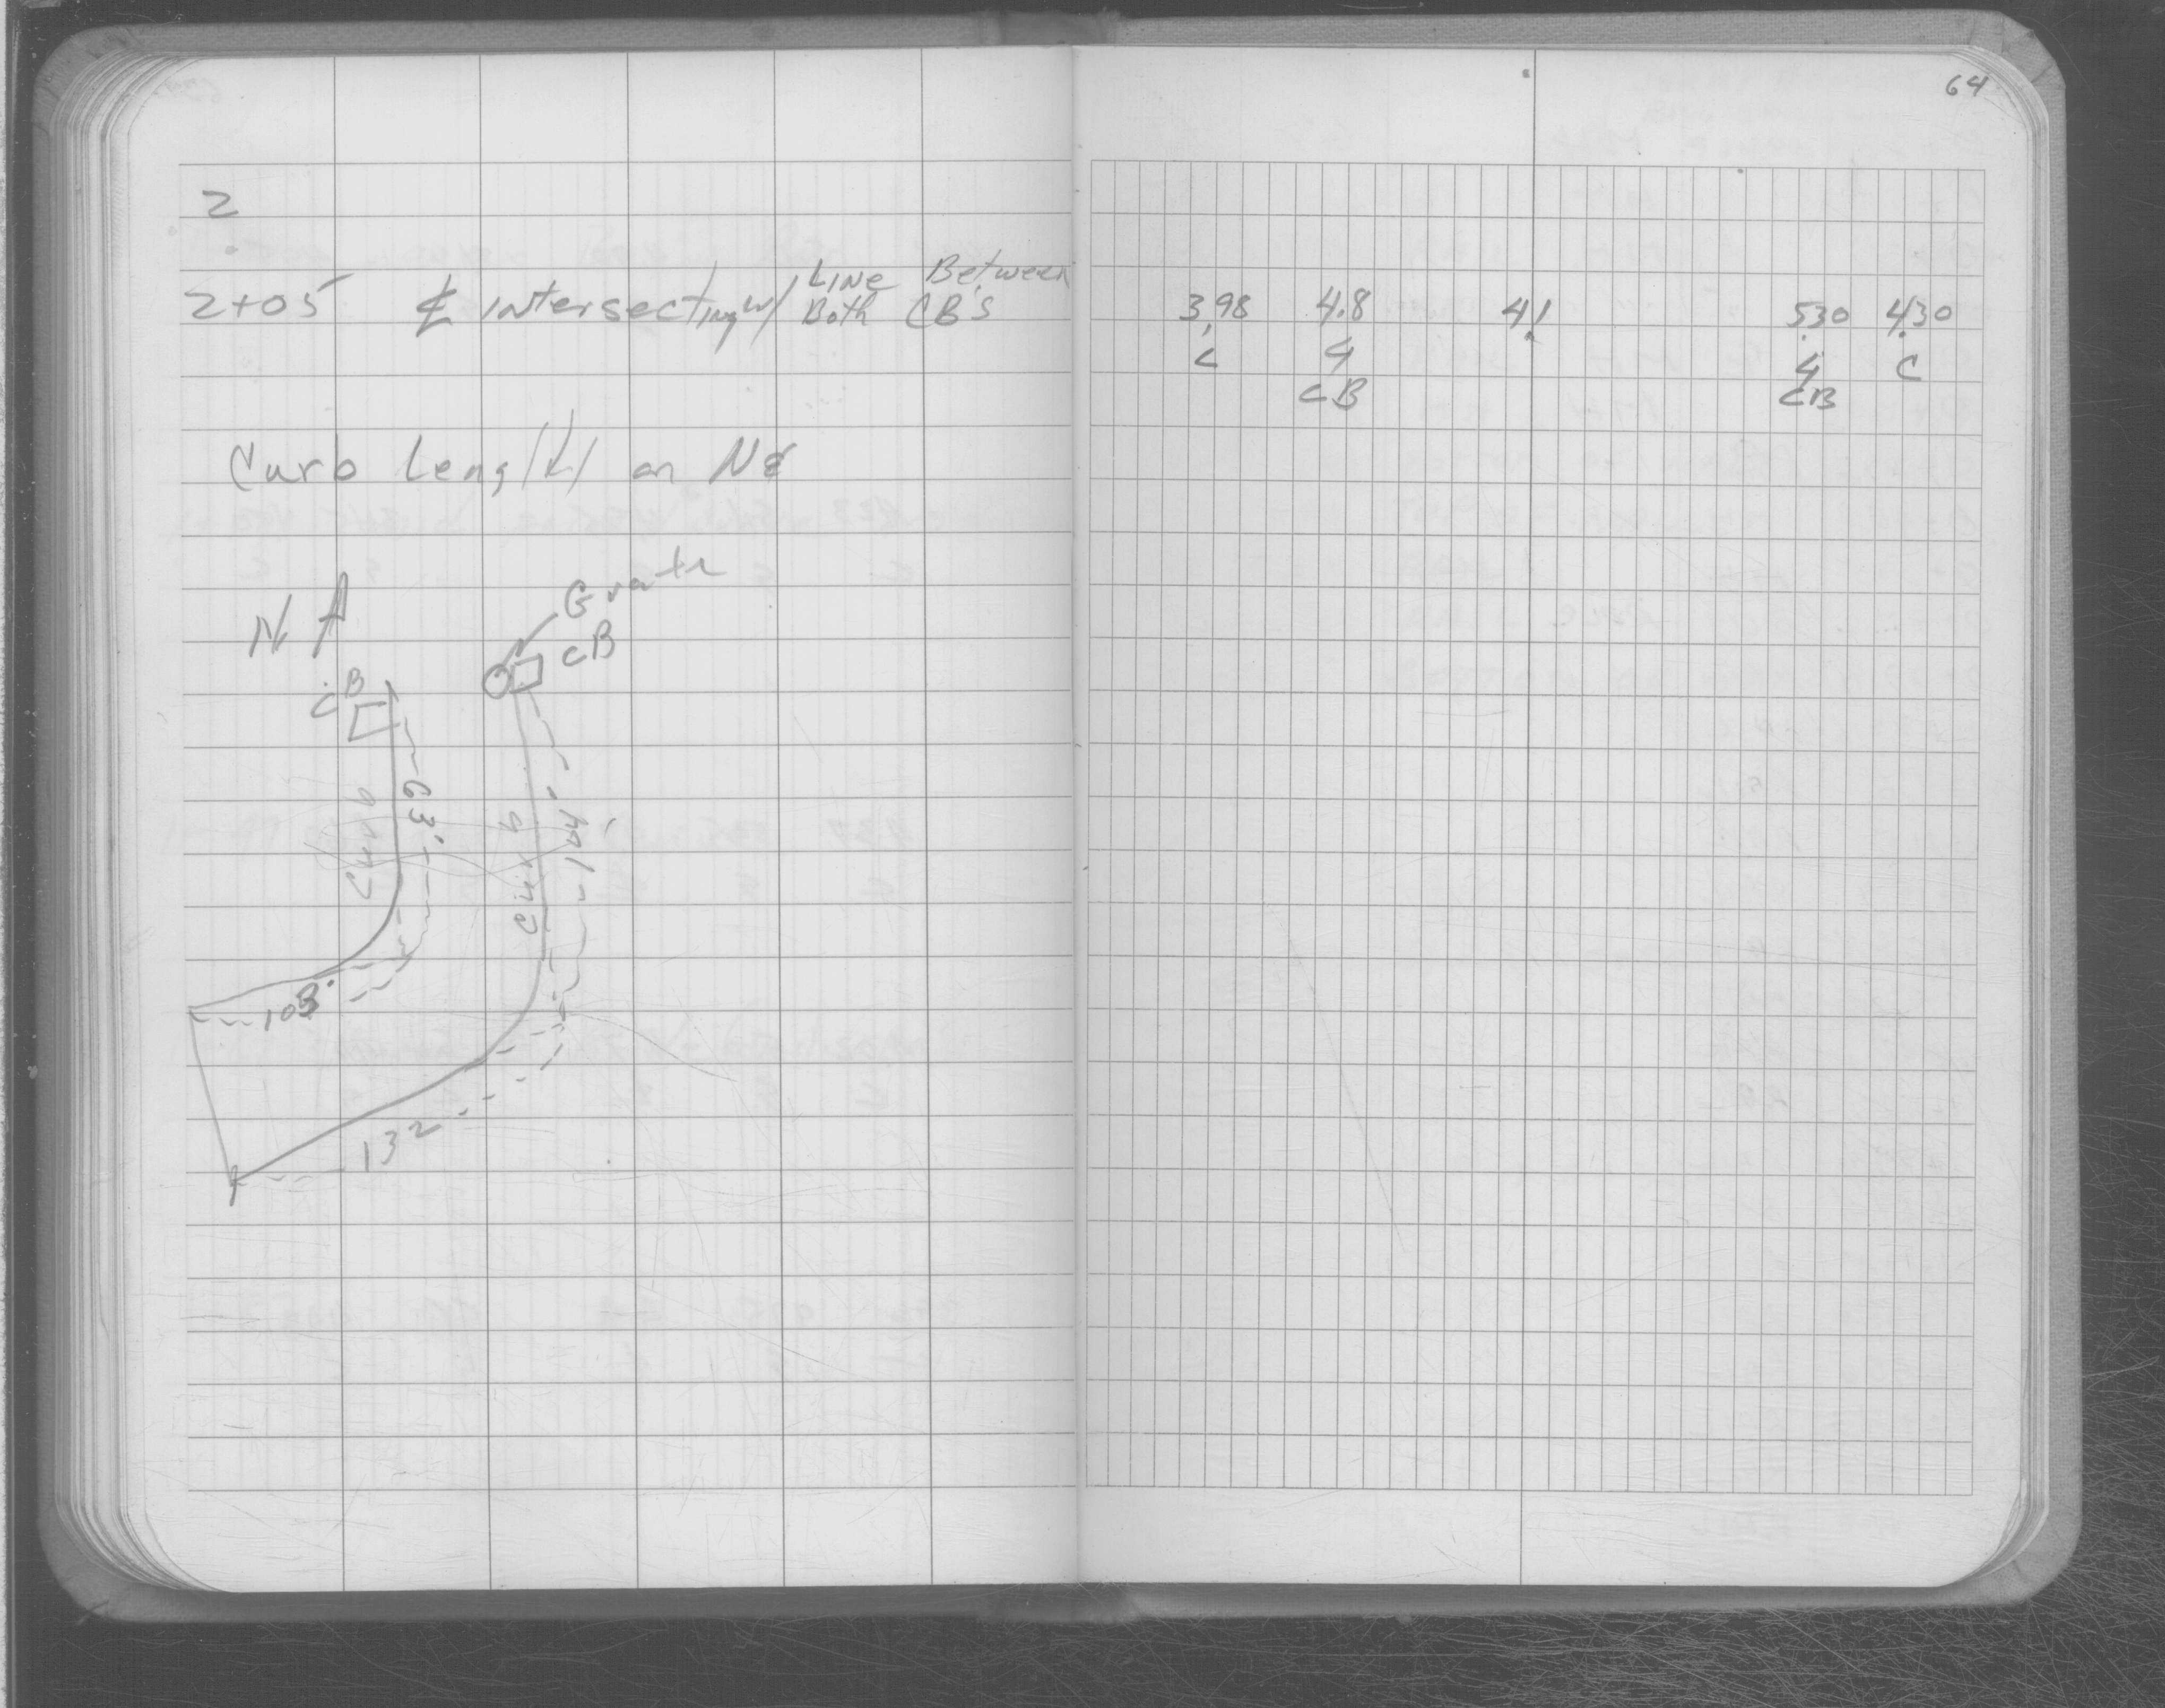 64
2
2+05 ℄ intersecting w/ Line Between Both CB's 3.98 4.8 4.1 5.30 4.30
C G G C
CB CB
Curb Length on NE
N
Grate
CB
CB
63'
Curb
104'
Curb
103'
132